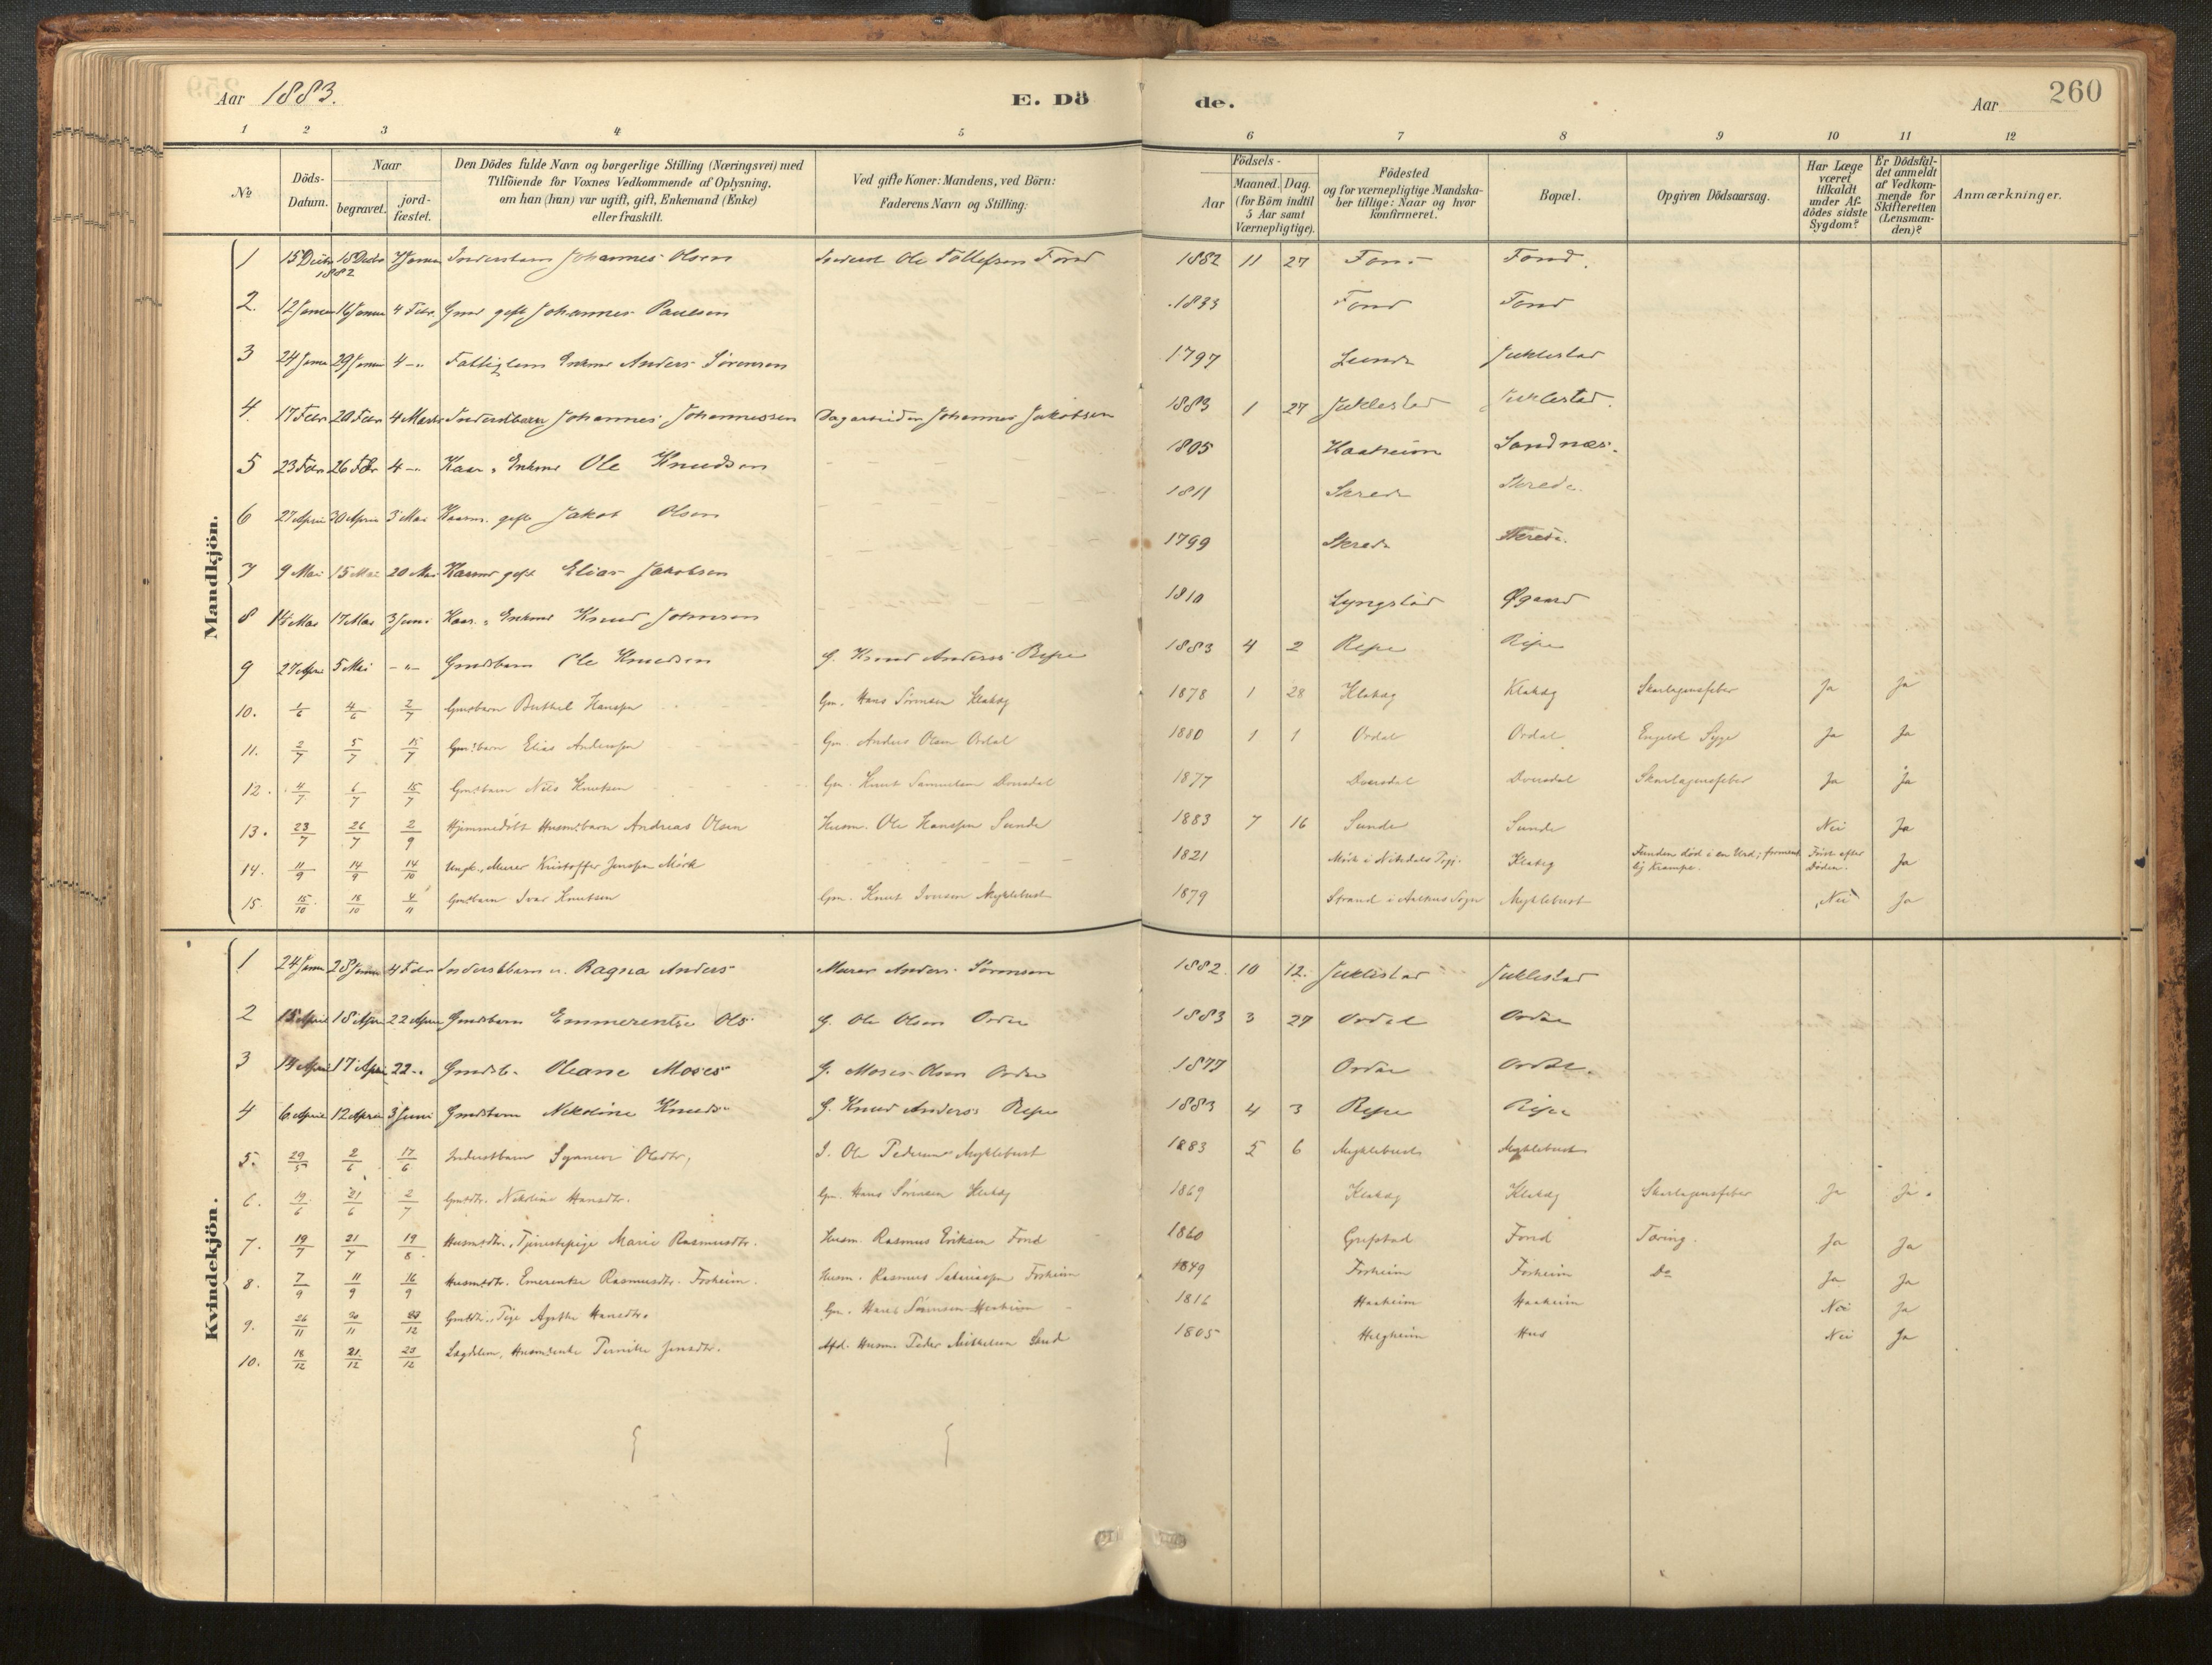 Aar 1883.
E. Dö
de.
Aar
260
1 2 3 4 5 6 7 8 9 10 11 12
No
Döds-Datum.
Naar
begravet.
jord-fæstet.
Den Dödes fulde Navn og borgerlige Stilling (Næringsvei) med
Tilföiende for Voxnes Vedkommende af Oplysning,
om han (hun) var ugift, gift, Enkemand (Enke)
eller fraskilt.
Ved gifte Koner: Mandens, ved Börn:
Faderens Navn og Stilling.
Födsels-
Aar
Maaned. Dag.
(for Börn indtil
5 Aar samt
Værnepligtige).
Födested
og for værnepligtige Mandska-
ber tillige: Naar og hvor
konfirmeret.
Bopæl.
Opgiven Dödsaarsag.
Har Læge
været
tilkaldt
under Af-
dödes sidste
Sygdom?
Er Dödsfal-
det anmeldt
af Vedkom-
mende for
Skifteretten
(Lensman-
den)?
Anmærkninger.
Mandkjön.
1 15 Decbr 18 Decbr 1882 Johannes Olsen Ole Tollefsen Fond 1882 11 27 Fond Fond.
2. 4 Febr. Gmd gift Johannes Paulsen 1833 Fond Fond
3 4 -"- Fattiglem Enkmd Anders Sörensen 1797
4. 17 Febr 20 Febr 4 Marts Inderstbarn Johannes Johannessen Dagarbeider Johannes Jakobsen 1883 1 27 Juklestad Juklestad.
5 23 Febr 26 Febr 4 -"- Enkmd Ole Knudsen 1805 Haaheim Sandnæs.
6 27 April 30 April 3 Mai gift Jakob Olsen 1811 Skrede Skrede.
7 9 Mai 15 Mai 20 Mai gift Elias Jakobsen 1799 Skrede Skrede.
8 14 Mai 17 Mai 3 Juni Enkmd Knud Johnsen 1810 Lyngstad Øgaard
9 27 April 5 Mai -"- Gmdsbarn Ole Knudsen G. Knud Anders. Repe 1883 4 2 Repe Ripe
10. 1/6 4/6 2/7 Gmdsbarn Berthel Hanssen Gm. Hans Sörensen Klakeg 1878 1 28 Klakeg Klakeg Skarlagensfeber Ja Ja
11. 2/7 5/7 15/7 Gm.barn Elias Anderssen Gm. Anders Olsen Ordal 1880 1 1 Ordal Ordal Engelsk Syge Ja Ja
12. 4/7 6/7 15/7 Gmsbarn Nils Knutsen Gm. Knut Samuelsen Dvergdal 1877 Dvergdal Dvergdal Skarlagensfeber Ja Ja
13. 23/7 26/7 2/9 Hjemmedöbt Husm.barn Andreas Olsen Husm. Ole Hanssen Sunde 1883 7 16 Sunde Sunde Nei Ja
14. 11/9 14/9 14/10 Ungk., Murer Kristoffer Jenssen Mörk 1821 Mörk i Nitedals Pgj. Klakeg Funden död i en Urd; forment-
lig Krampe. Först efter
Döden. Ja
15. 15/10 18/10 4/11 Gmsbarn Ivar Knutsen Gm. Knut Iversen Myklebust 1879 Strand i Aalhus Sogn Myklebust Nei Ja
Kvindekjön.
1 4 Febr Inderstbarn Ragna Anders Murer Anders Sörensen 1882. 10 12. Juklestad Juklestad
2 15 April 18 April 22 April Gmdsbarn Emmerentse Ols G. Ole Olsen Ordal 1883 3 27 Ordal Ordal
3 14 April 17 April 22 -"- Gmdsb. Oleane Moses G. Moses Olsen Ordal 1877 Ordal Ordal.
4 6 April 12 April 3 Juni Gmdsbarn Nikoline Knuds G. Knud Anders. Repe 1883 4 3 Repe Ripe
5. 29/5 2/6 17/6 Inderstbarn Synneve Olsdtr. I. Ole Pedersen Myklebust 1883 5 6 Myklebust Myklebust
6. 19/6 21/6 2/7 Gmdtr. Nikoline Hansdtr. Gm. Hans Sörensen Klakeg 1869 Klakeg Klakeg Skarlagensfeber Ja Ja.
7. 19/7 21/7 19/8. Husmdtr., Tjenestepige Marie Rasmusdtr. Husm. Rasmus Eriksen Fond 1860 Grepstad Fond Tæring. Ja Ja
8. 7/9 11/9 16/9 Husmdtr. Emerentse Rasmusdtr. Forheim. Husm. Rasmus Forheim 1849 Forheim Forheim Do Ja Ja
9. 26/11 30/11 Gmdtr., Pige Agathe Hansdtr. Gm. Hans Sörensen Haaheim 1816 Haaheim Haaheim Nei Ja
10. 18/12 21/12 23/12 Lægdslem, Husm.enke Pernille Jensdtr. Afd. Husm. Peder Mikkelsen 1805 Helgheim Hus Nei Ja